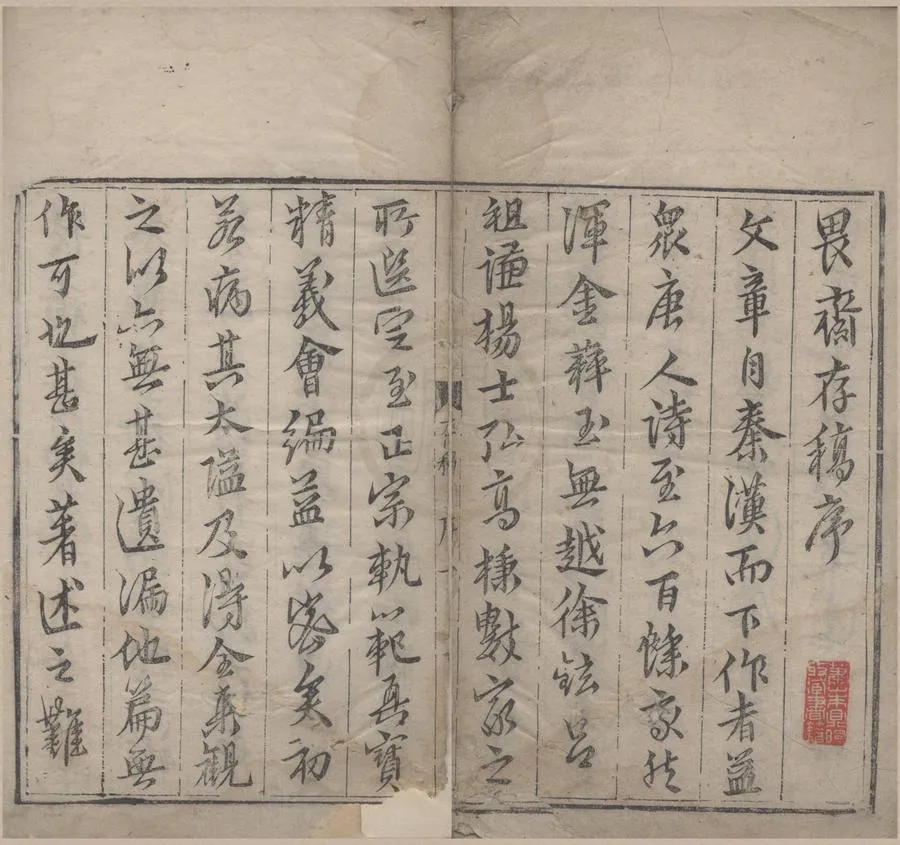 畏齋存稿序
文章自秦漢而下作者益
眾唐人詩至六百餘家然
渾金璞玉無越徐鉉呂
祖謙楊士弘高棅數家之
所選定至正宗執以範吾寶
精義會編益以密矣初
若病其太隘及得全集觀
之以亦無甚遺漏他篇無
作可也甚矣著述之難
存稿 序 一